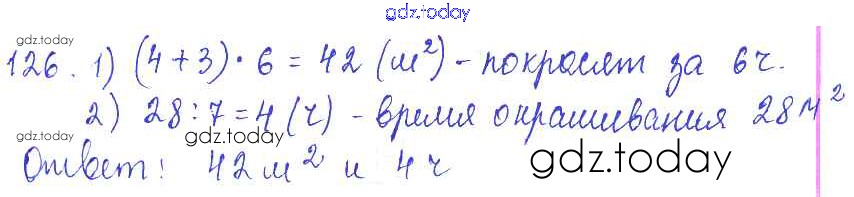 gdz.today
gdz.today
126. 1) (4+3)·6=42 (м²) - покрасят за 6ч.
2) 28:7=4 (ч) - время окрашивания 28м²
gdz.today
gdz.today
Ответ: 42м² и 4ч
gdz.today